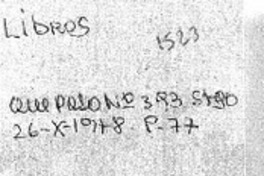 Libros
1523
Que Paso Nº 393 Stgo
26-X-1978. P-77